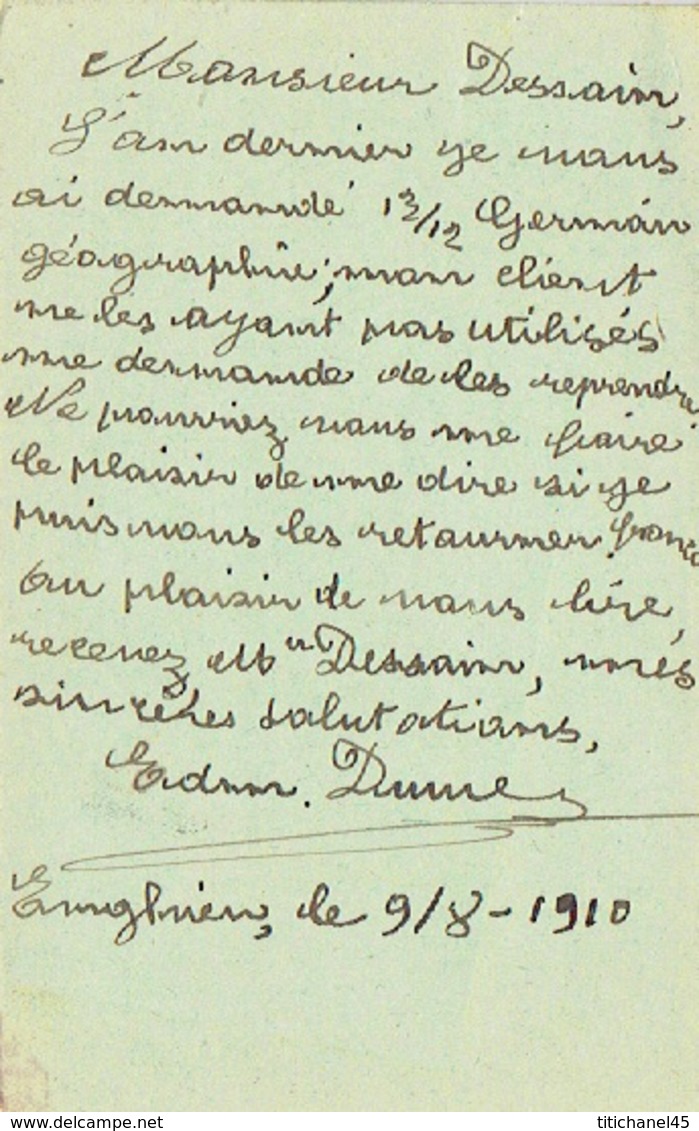 Monsieur Dessain,
L'an dernier je vous
ai demandé 13/12 Germán
géographie; mon client
ne les ayant pas utilisés
me demande de les reprendre
Ne pourriez vous me faire
le plaisir de me dire si je
puis vous les retourner franco
Au plaisir de vous lire,
recevez Mr Dessain, mes
sincères salutations,
Edm.
Enghien, le 9/8-1910
delcampe.net
titichanel45